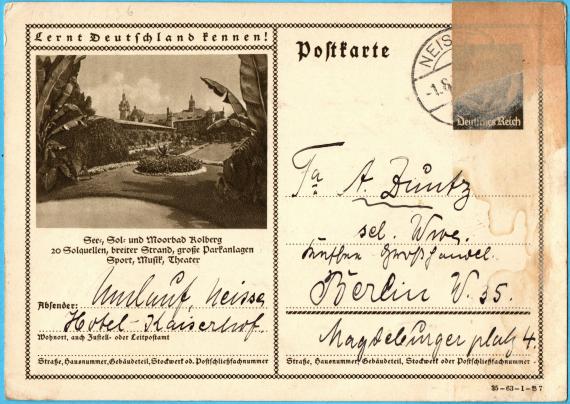 Lernt Deutschland kennen!
Postkarte
NEIS
-1.8
Deutsches Reich
See-, Sol- und Moorbad Kolberg
20 Solquellen, breiter Strand, große Parkanlagen
Sport, Musik, Theater
Absender: Umlauf Neisse
Hotel-Kaiserhof.
Wohnort, auch Zustell- oder Leitpostamt
Straße, Hausnummer, Gebäudeteil, Stockwerk od. Postschließfachnummer
Fa A. Zuntz
sel. Wwe.
Kaffee Großhandel.
Berlin W. 35.
Magdeburger platz 4.
Straße, Hausnummer, Gebäudeteil, Stockwerk oder Postschließfachnummer
35-63-1-B7